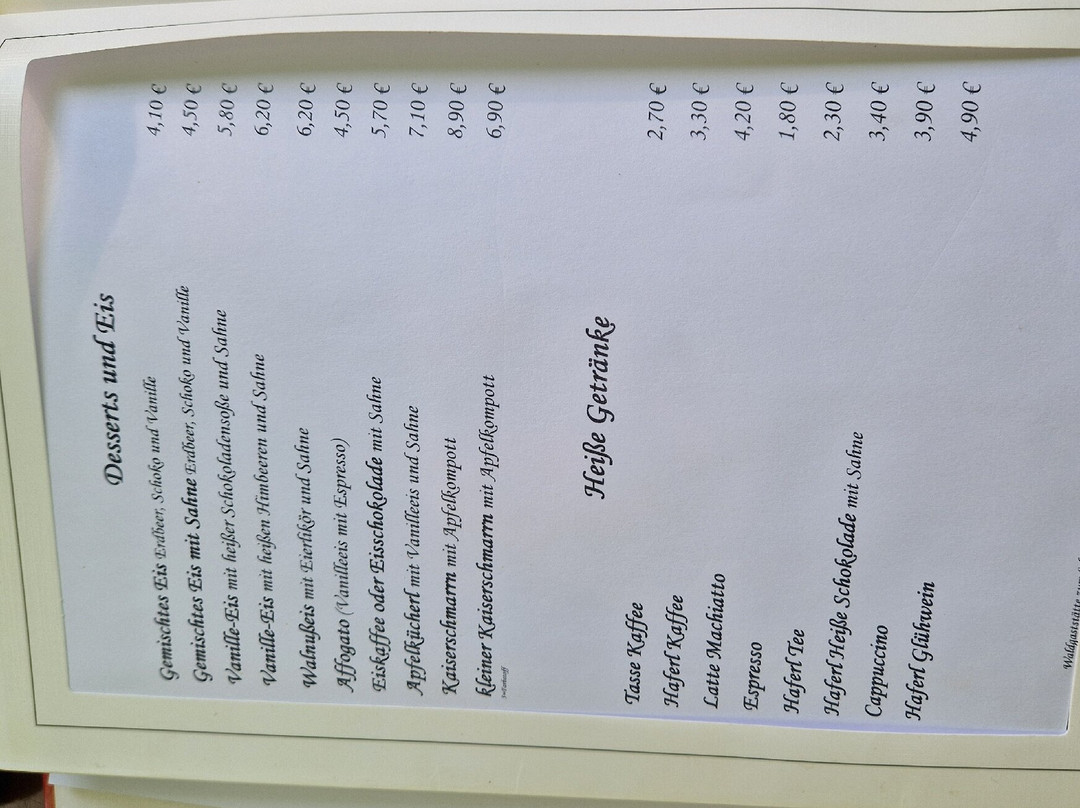 Desserts und Eis
Gemischtes Eis Erdbeer, Schoko und Vanille 4,10 €
Gemischtes Eis mit Sahne Erdbeer, Schoko und Vanille 4,50 €
Vanille-Eis mit heißer Schokoladensoße und Sahne 5,80 €
Vanille-Eis mit heißen Himbeeren und Sahne 6,20 €
Walnußeis mit Eierlikör und Sahne 6,20 €
Affogato (Vanilleeis mit Espresso) 4,50 €
Eiskaffee oder Eisschokolade mit Sahne 5,70 €
Apfelkücherl mit Vanilleeis und Sahne 7,10 €
Kaiserschmarrn mit Apfelkompott 8,90 €
kleiner Kaiserschmarrn mit Apfelkompott 6,90 €
Heiße Getränke
Tasse Kaffee 2,70 €
Haferl Kaffee 3,30 €
Latte Machiatto 4,20 €
Espresso 1,80 €
Haferl Tee 2,30 €
Haferl Heiße Schokolade mit Sahne 3,40 €
Cappuccino 3,90 €
Haferl Glühwein 4,90 €
Waldgaststätte